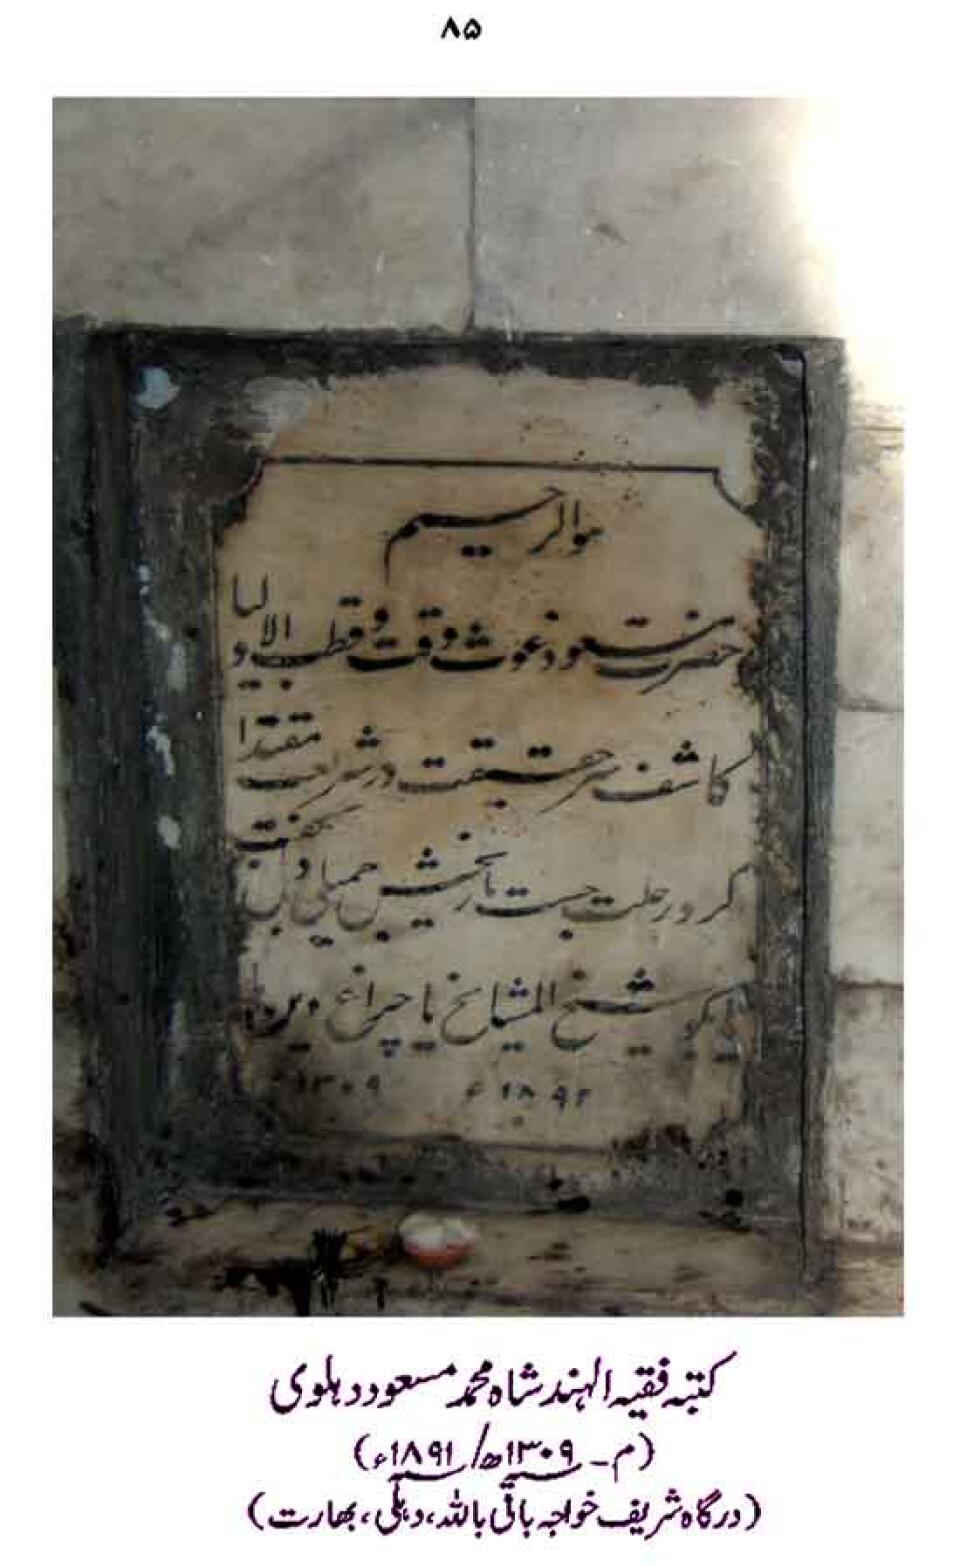 ۸۵
ہوالرحیم
حضرت مسعود غوث وقت و قطب الاولیا
کاشف سر حقیقت در شریعت مقتدا
کرد رحلت جست تاریخش جمیلی دل بگفت
شیخ المشایخ یا چراغ دین
۱۳۰۹ ۱۸۹۲ء
کتبہ فقیہ الہند شاہ محمد مسعود دہلوی
(م ۔ ۱۳۰۹ھ/ ۱۸۹۱ء)
(درگاہ شریف خواجہ باقی باللہ، دہلی، بھارت)